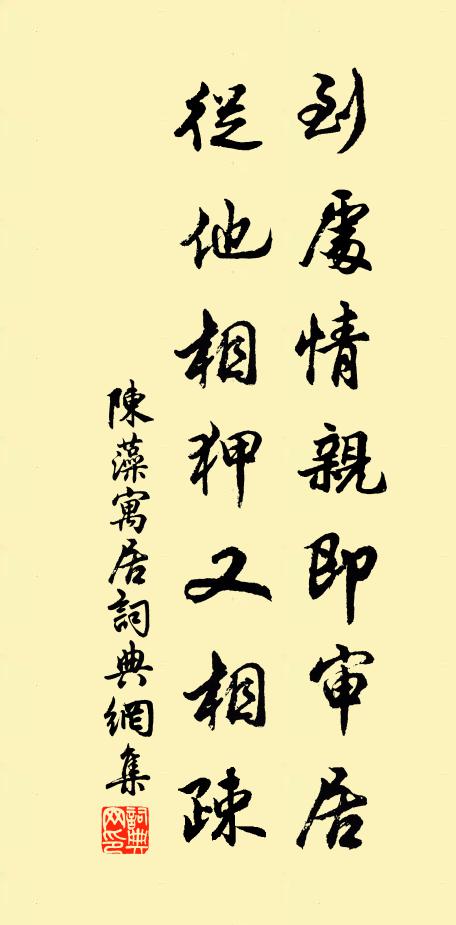 到處情親即审居
從他相狎又相疎
陳藻寓居詞典網集
詞典網印